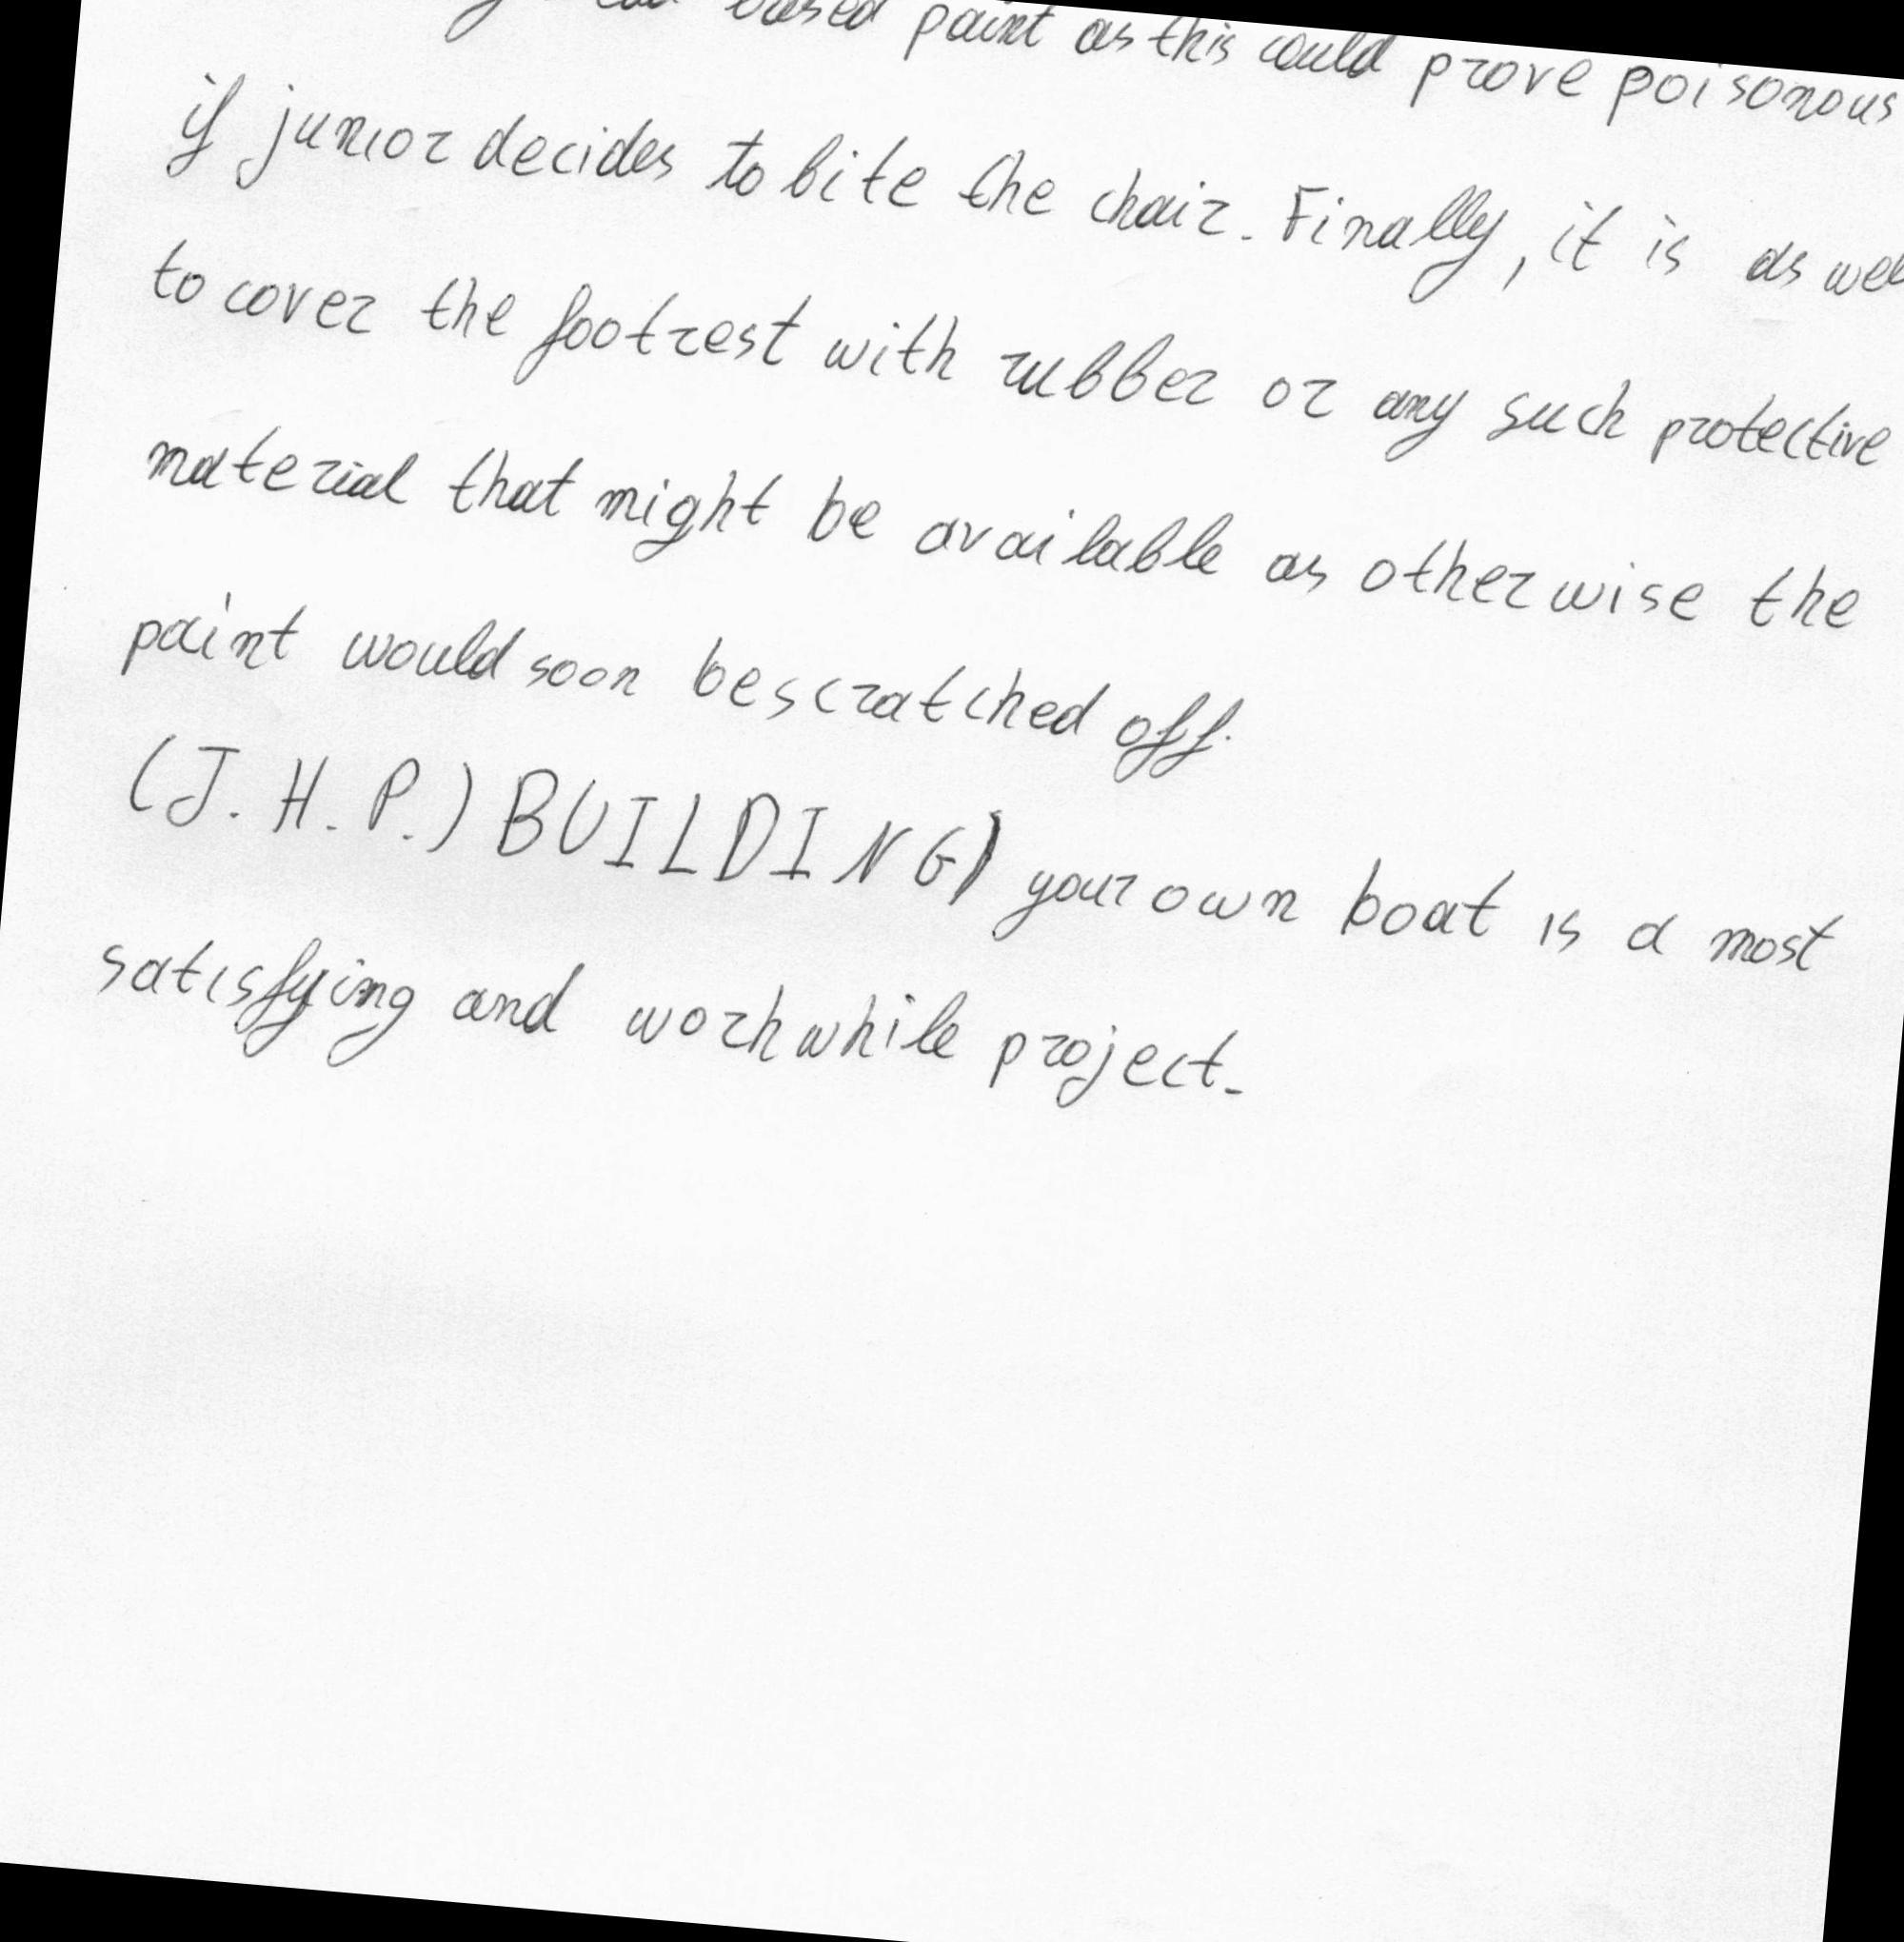 based paint as this could prove poisonous
if junior decides to bite the chair. Finally, it is as
to cover the footrest with rubber or any such protective
material that might be available as otherwise the
paint would soon be scratched off.
(J.H.P.) BUILDING) your own boat is a most
satisfying and worhwhile project.